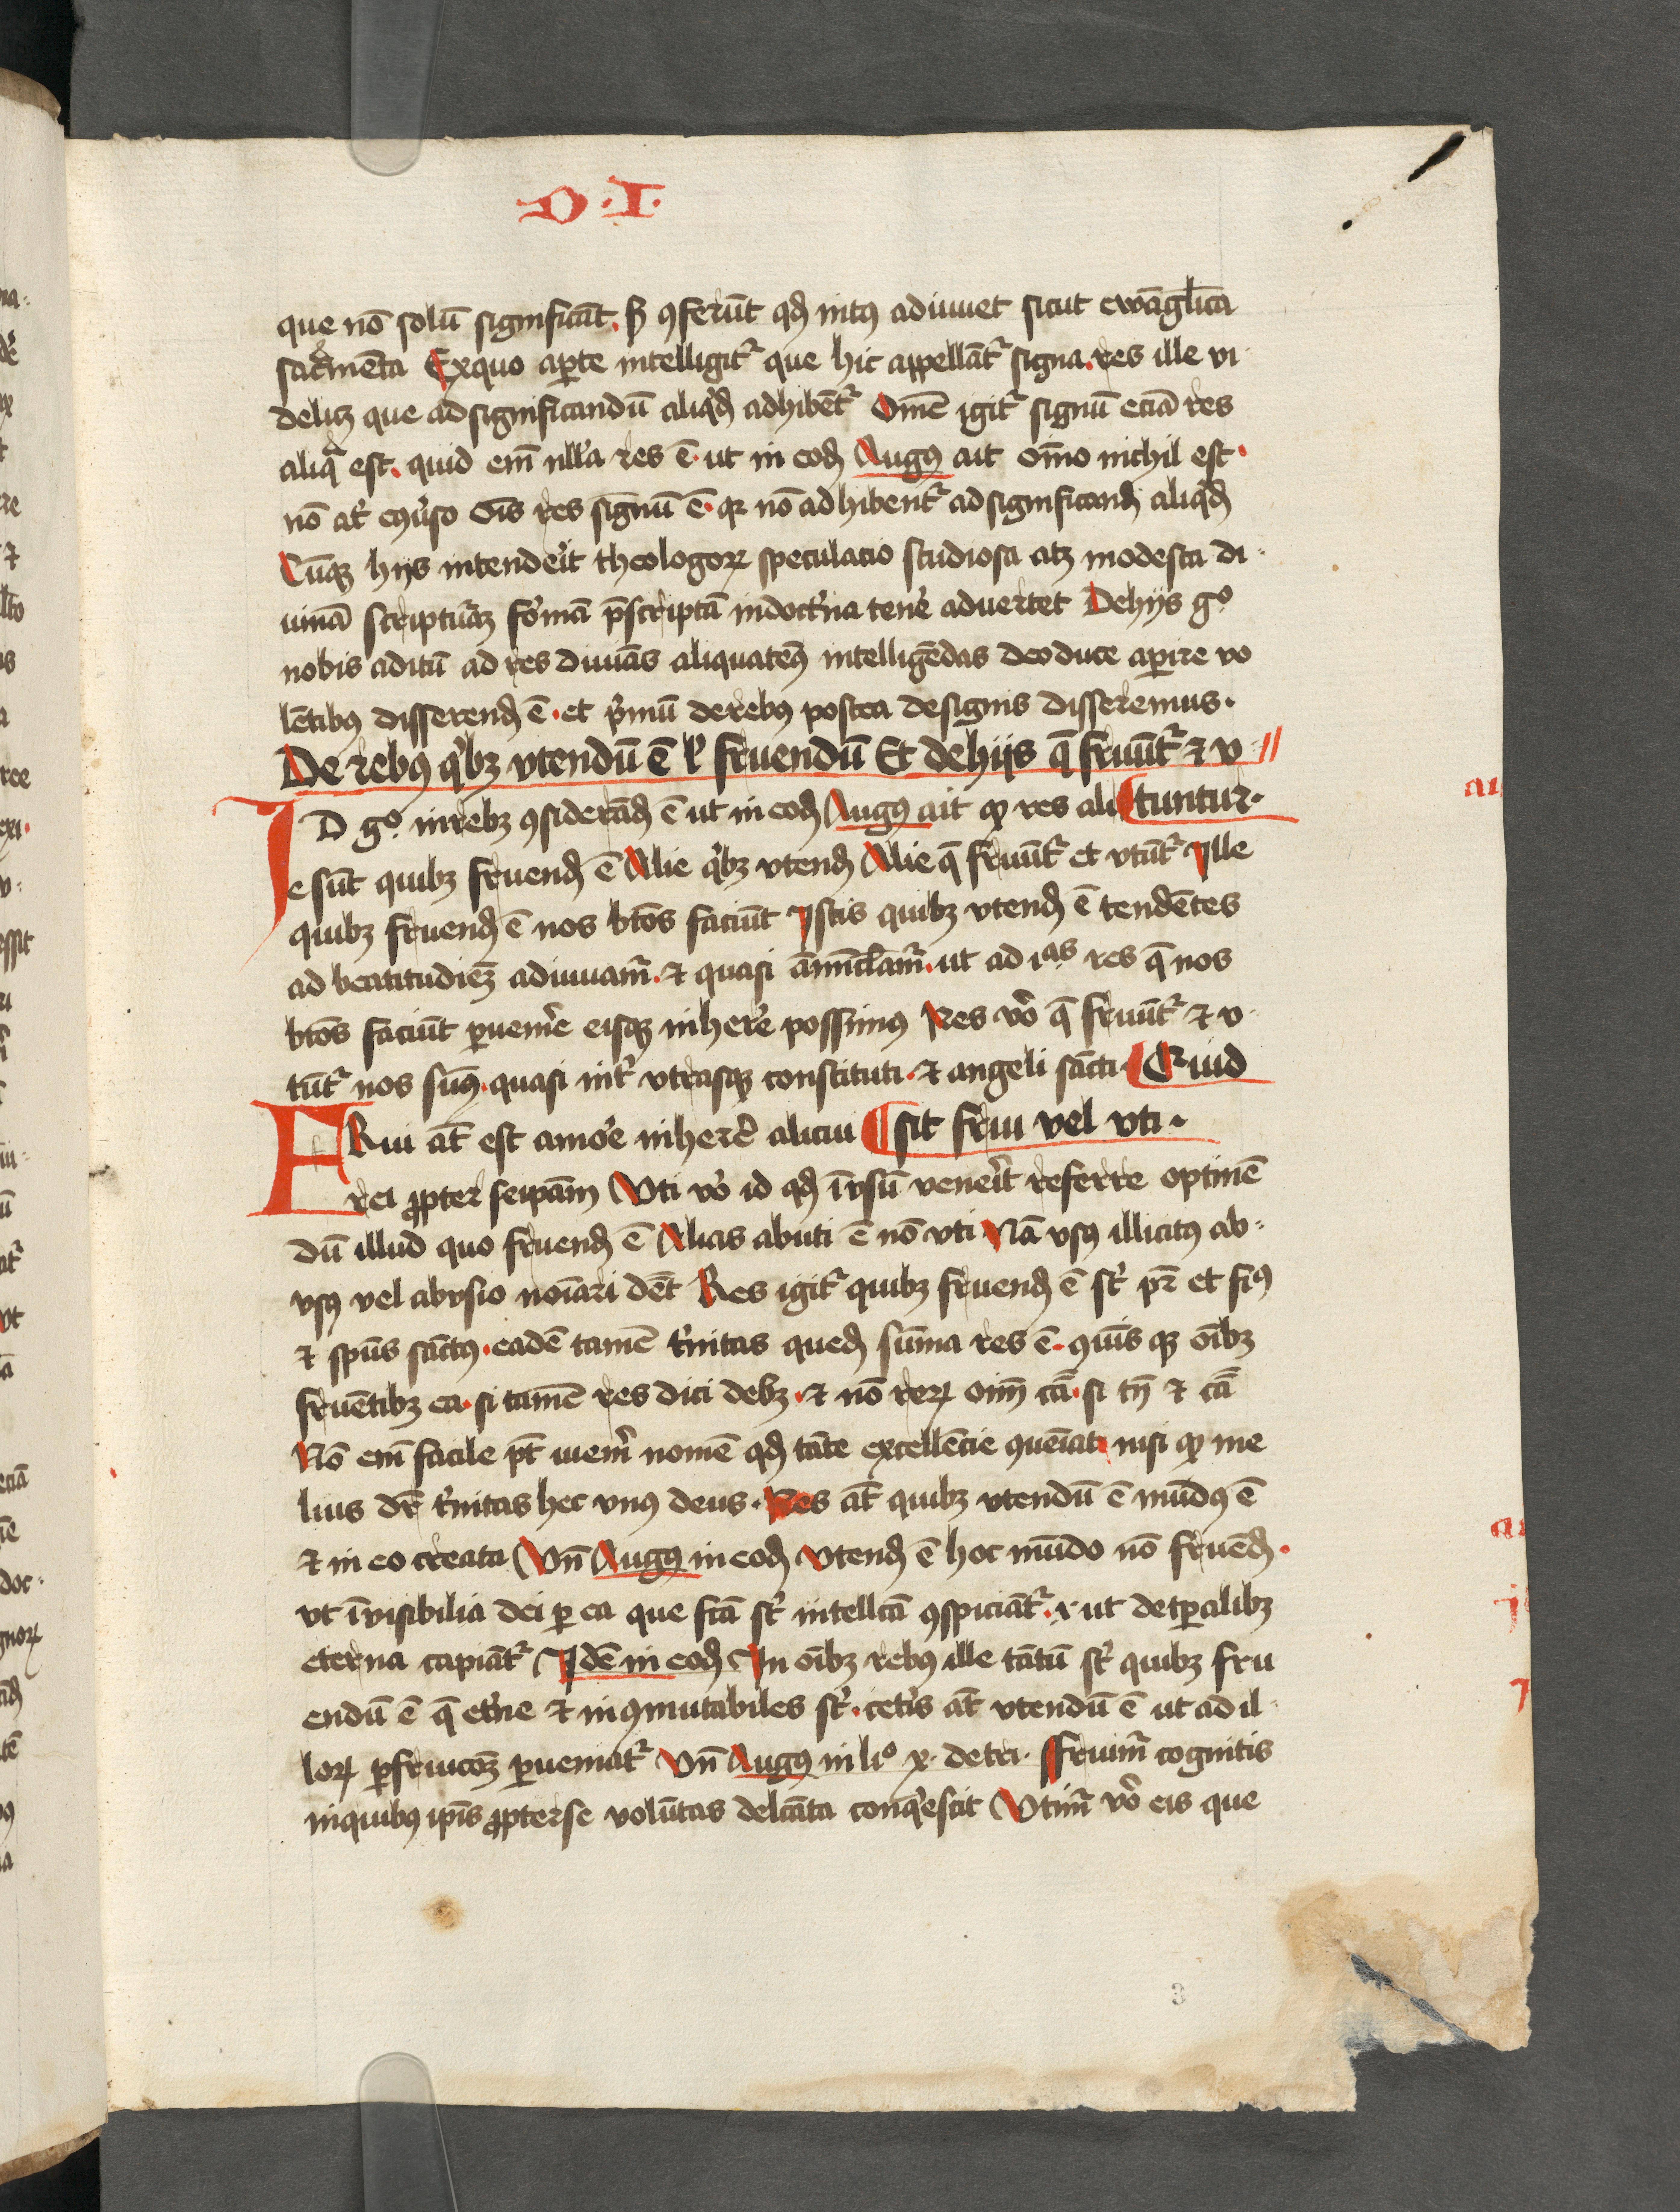 D·I·
que nō solū significāt. sꝫ ꝯferūt qđ intꝰ adiuuet sicut ewāglica
sacͣmēta Exquo aꝑte intelligitᷣ que hic appellātᷣ signa. res ille vi
delicꝫ que ad significandū aliqͥđ adhibētᷣ Omē igitᷣ signū eciā res
aliqͣ est. quid em̄ nll'a res ē. ut in eođ Augꝰ ait oīno nichil est·
nō at' eꝯuͥso oīs res signū ē· qꝛ nō adhibentᷣ ad significanđ aliqͥđ
Cūqꝫ hijs intendeͥit theologoꝝ speculacio studiosa atqꝫ modesta di-
uinā scripturāꝫ foͥmā p̄scriptā indoctͥna tenēͥ aduertet Dehijs gͦ
nobis aditū ad res diuinās aliquatenꝰ intelligēdas deo duce aꝑire vo
lētibꝰ disserenđ ē· et pͥmū derebꝰ postea designis disseremus·
De rebꝰ qͥbꝫ vtendū ē lͥ fruendū Et dehijs q̄ fruūtᷣ ⁊ v
ID gͦ· inrebꝫ ꝯsiderāđ ē ut in eođ Augꝰ ait ꝙ res ali ¶tuntur·
e sūt quibꝫ fruenđ ē Alie qͥbꝫ vtenđ Alie q̄ fruūtᷣ et vtūtᷣ Ille
quibꝫ fruenđ ē nos btōs faciūt Istis quibꝫ vtenđ ē tendētes
ad beatitudiēꝫ adiuuamᷣ· ⁊ quasi āminīclamᷣ· ut ad ıas res q̄ nos
btōs faciūt ꝑuenire eisqꝫ inherēͥ possimꝰ Res vͦo q̄ fruūtᷣ ⁊ v
tūtᷣ nos sumꝰ· quasi intᷣ vtrasqꝫ constituti· ⁊ angeli sācti ¶ Quid
FRui at̄ est amoͥe inherēͥ alicui ¶ sit frui vel vti·
rei ꝓpter seipam̄ Vti vͦo id qđ īvsū veneͥit referre optinē
dū illud quo fruenđ ē Alias abuti ē nō vti Nā vsꝰ illicitꝰ ab-
vsꝰ vel abvsio noīari dēt Res igitᷣ quibꝫ fruenđ ē st' pr̄ et fiꝰ
⁊ spūs sāctus· eadē tamē tͥnitas queđ sūma res ē· ꝯmūis qꝫ oībꝫ
fruētibꝫ ea· si tamē res dici debꝫ· ⁊ nō reꝝ oim̄ cā· si tn̄ ⁊ cā
Nō em̄ facile pt̄ iuemͥ nomē qđ tāte excellēcie ꝯueīat nisi ꝙ me
lius dr̄ tͥnitas hec vnꝰ deus· Res at̄ quibꝫ vtendū ē mūdꝰ ē
⁊ in eo creata Vn̄ Augꝰ in eođ Vtenđ ē hoc mūdo nō fruēđ·
vt īvisibilia dei ꝑ ea que fc̄a st' intellc̄a ꝯspiciātᷣ· ·i· ut detꝑalibꝫ
eterna capiātᷣ Idē in eođ In oībꝫ rebꝰ ille tātū st' quibꝫ fru
endū ē q̄ etͥne ⁊ inꝯmutabiles st'· cetͥis at̄ vtendū ē ut ad il-
loꝝ ꝑfruicōeꝫ ꝑueniatᷣ Vn̄ Augꝰ in liͦ x· detri· Fruimᷣ cognitis
inquibus ipīs ꝓpterse volūtas delc̄ata conqͥescit Vtimᷣ vͦo eis que
3